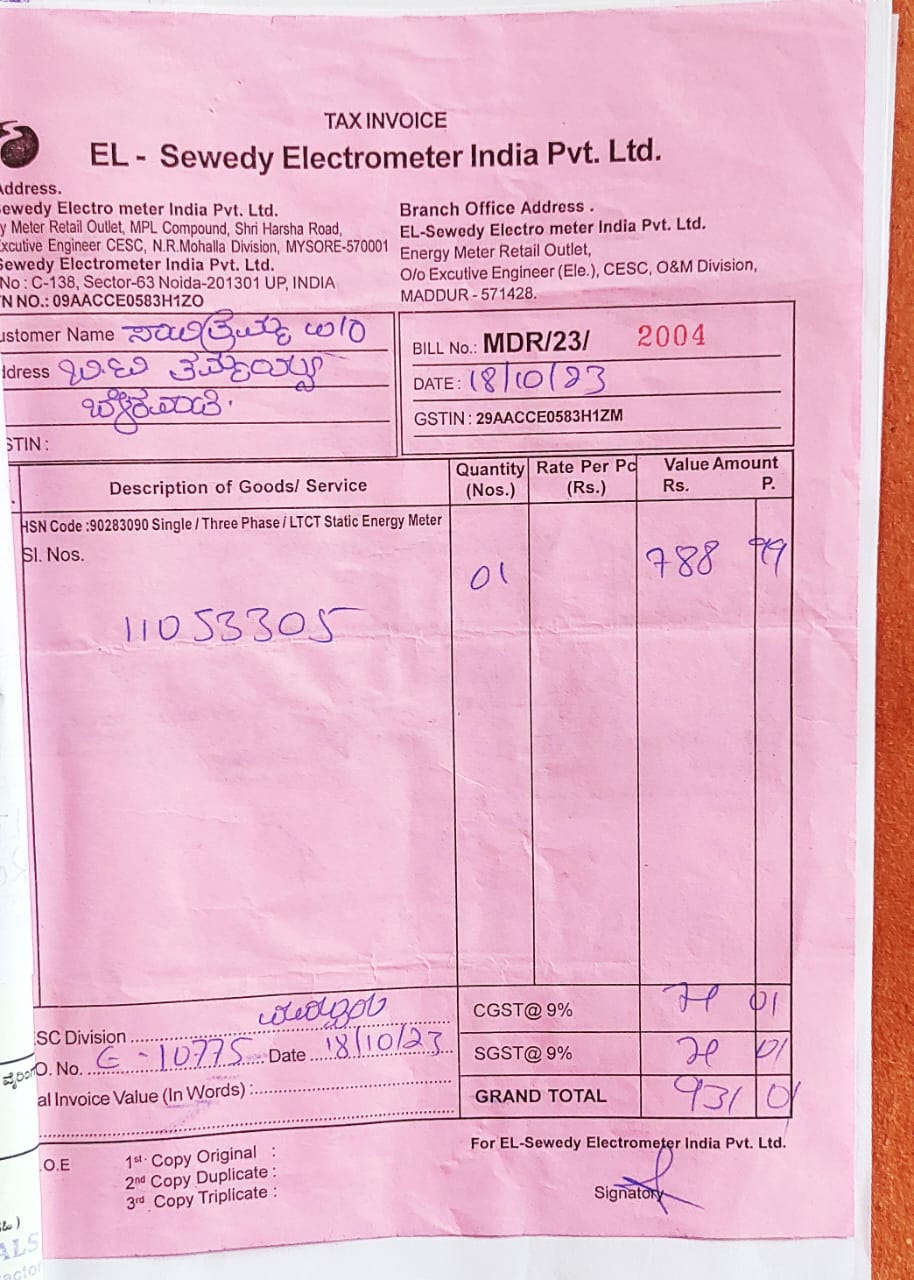 TAX INVOICE
EL - Sewedy Electrometer India Pvt. Ltd.
Address.
Sewedy Electro meter India Pvt. Ltd.
y Meter Retail Outlet, MPL Compound, Shri Harsha Road,
Excutive Engineer CESC, N.R.Mohalla Division, MYSORE-570001
Sewedy Electrometer India Pvt. Ltd.
No : C-138, Sector-63 Noida-201301 UP, INDIA
TN NO.: 09AACCE0583H1ZO
Branch Office Address .
EL-Sewedy Electro meter India Pvt. Ltd.
Energy Meter Retail Outlet,
O/o Excutive Engineer (Ele.), CESC, O&M Division,
MADDUR - 571428.
ustomer Name ಸಾವಿತ್ರಮ್ಮ W/O
ddress ತಮ್ಮಯ್ಯ
STIN :
BILL No.: MDR/23/ 2004
DATE : 18/10/23
GSTIN : 29AACCE0583H1ZM
Description of Goods/ Service Quantity (Nos.) Rate Per Pc (Rs.) Value Amount Rs. P.
HSN Code :90283090 Single / Three Phase / LTCT Static Energy Meter
Sl. Nos.
01 788 99
11053305
CGST@ 9% 71 01
SC Division ಮದ್ದೂರು
SGST@ 9% 71 01
O. No. E-10775 Date 18/10/23
al Invoice Value (In Words) :
GRAND TOTAL 931 01
For EL-Sewedy Electrometer India Pvt. Ltd.
.O.E
1st Copy Original :
2nd Copy Duplicate :
3rd Copy Triplicate :
Signatory